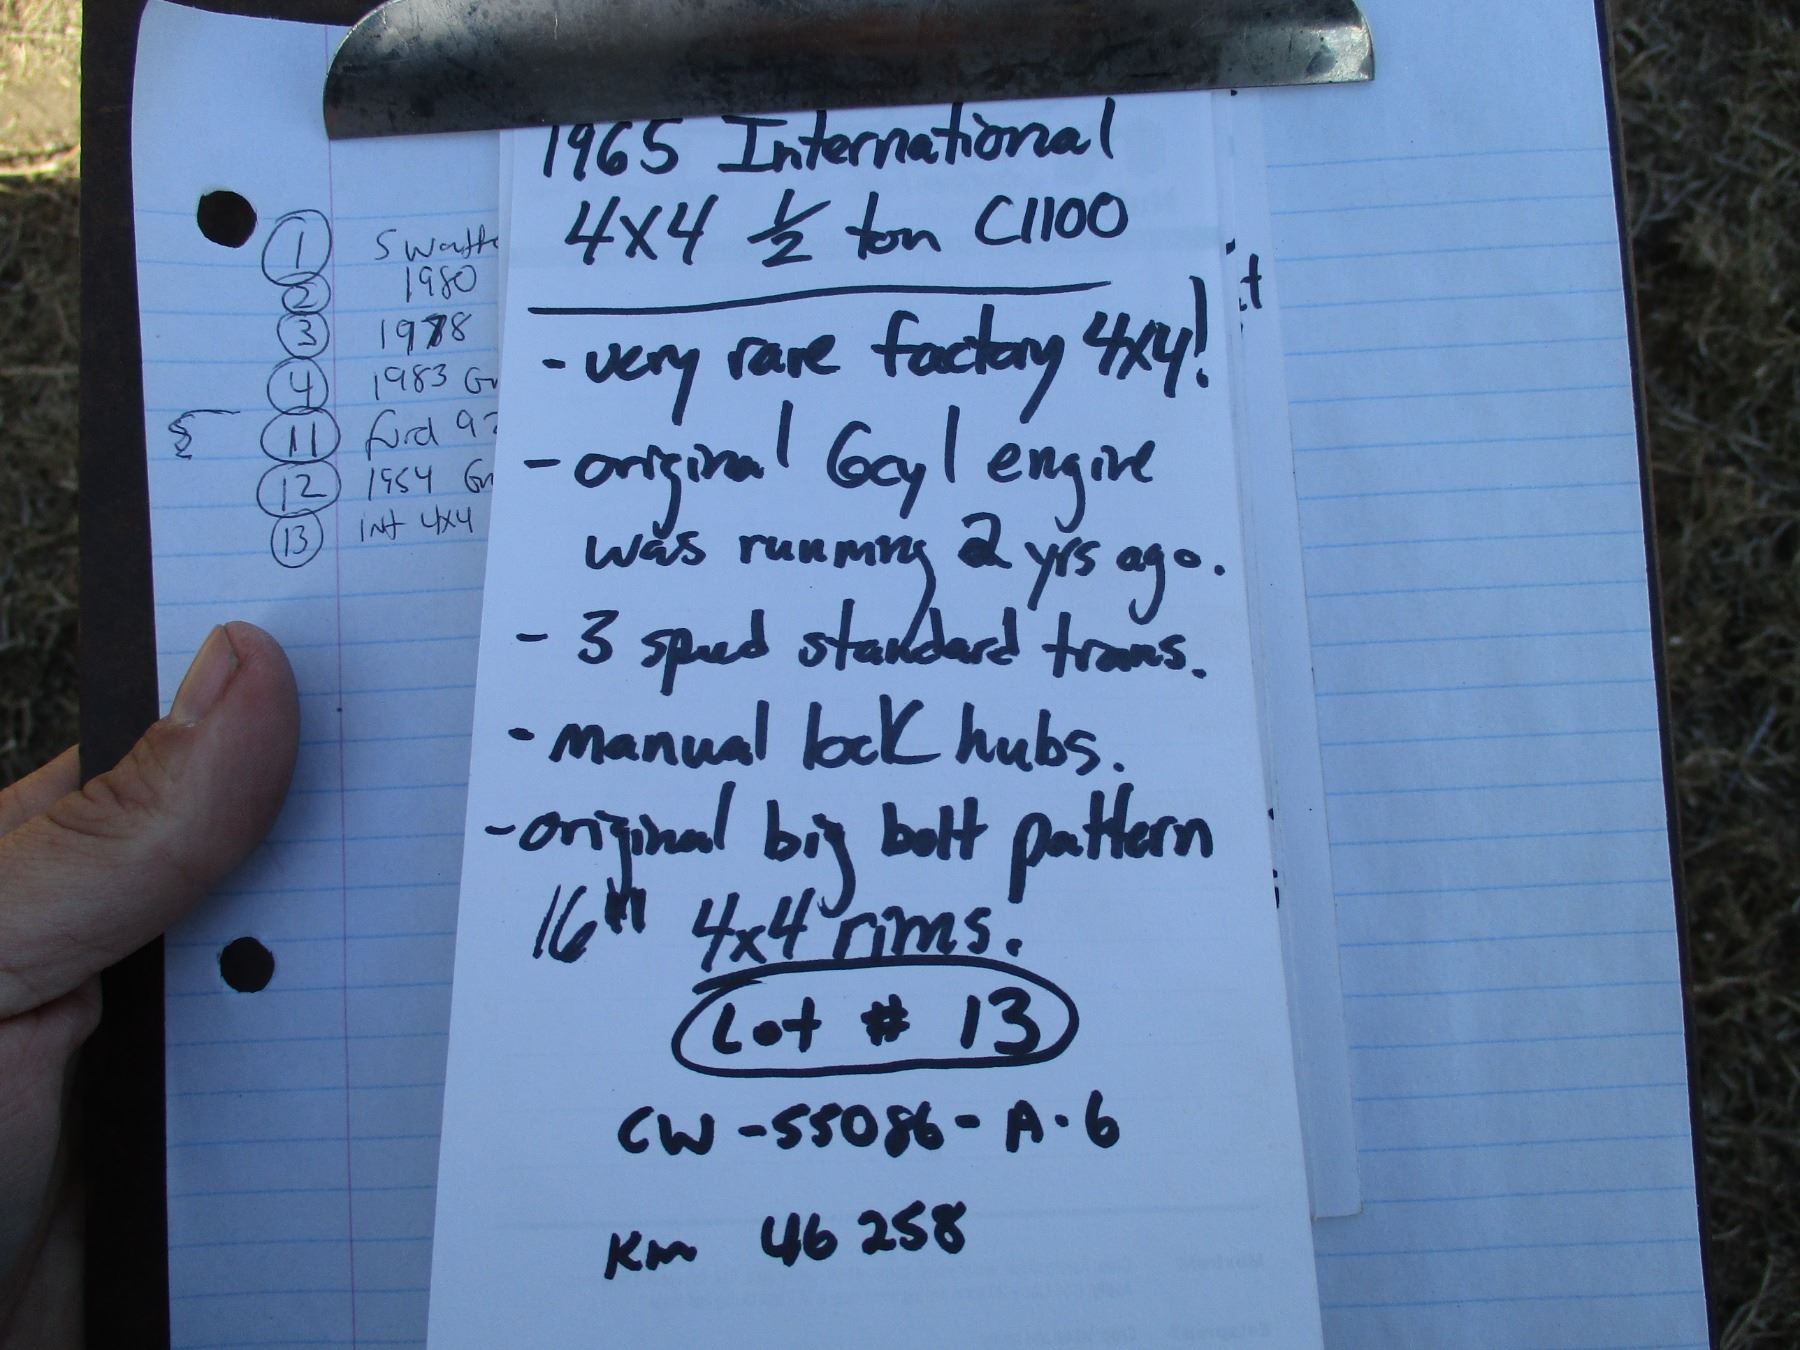 1965 International
4X4 1/2 ton C1100
- very rare factory 4x4!
- original 6cyl engine
was running 2 yrs ago.
- 3 speed standard trans.
- manual lock hubs.
- original big bolt pattern
16" 4x4 rims.
Lot # 13
CW-55086-A-6
Km 46 258
1
2 1980
3 1978
4 1983
11 ford
12 1954
13 int 4x4